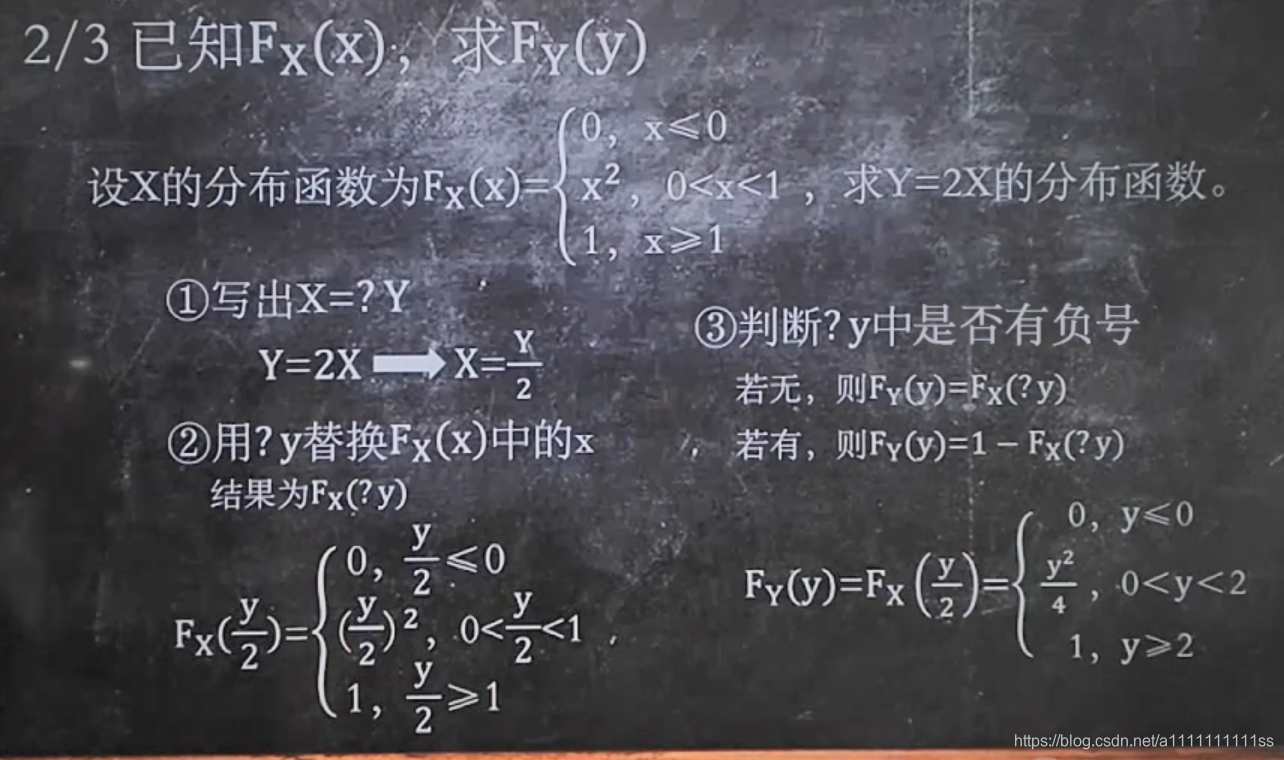 2/3 已知F_X(x)，求F_Y(y)
设X的分布函数为F_X(x)={0, x⩽0
x², 0<x<1
1, x⩾1
，求Y=2X的分布函数。
①写出X=?Y
Y=2X➡X=Y/2
②用?y替换F_X(x)中的x
结果为F_X(?y)
F_X(y/2)={0, y/2⩽0
(y/2)², 0<y/2<1
1, y/2⩾1
③判断?y中是否有负号
若无，则F_Y(y)=F_X(?y)
若有，则F_Y(y)=1－F_X(?y)
F_Y(y)=F_X(y/2)={0, y⩽0
y²/4, 0<y<2
1, y⩾2
https://blog.csdn.net/a1111111111ss